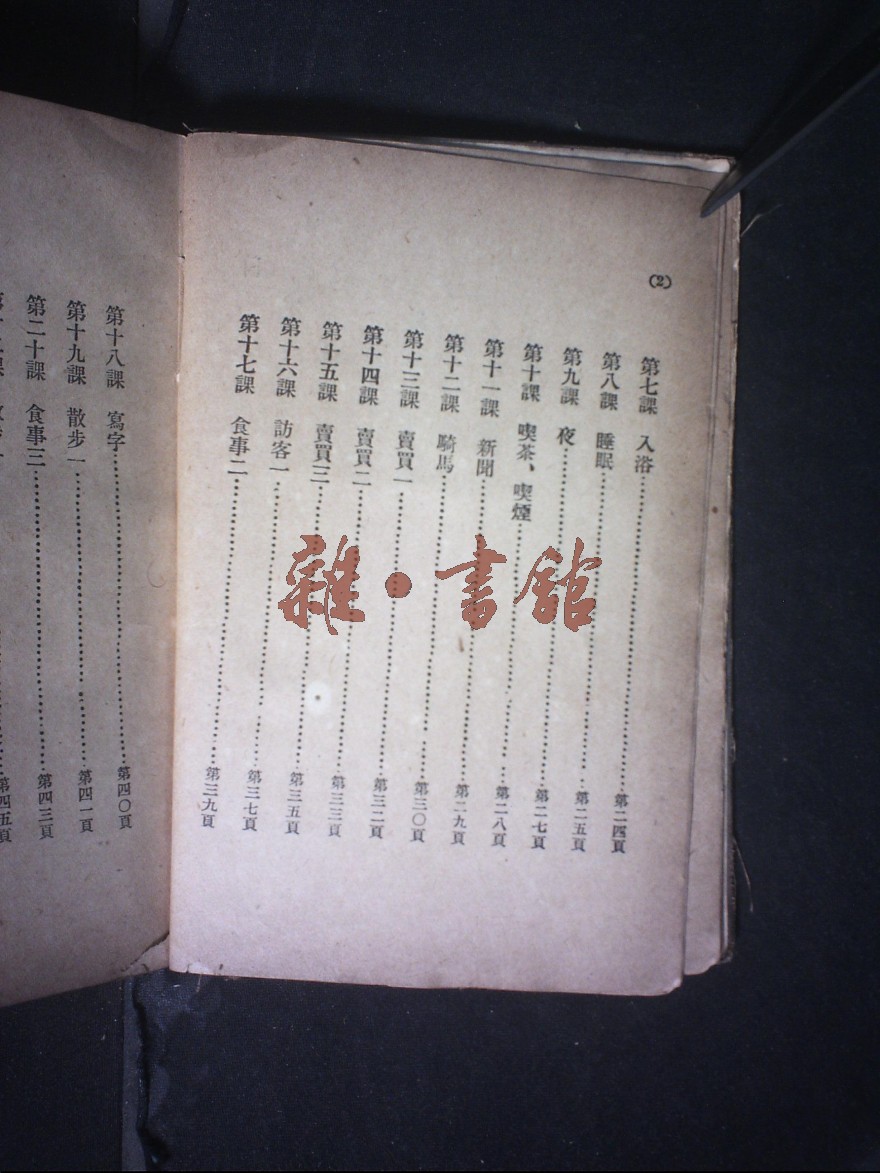 (2)
第七課 入浴……第二四頁
第八課 睡眠……第二五頁
第九課 夜……第二七頁
第十課 喫茶、喫煙……第二八頁
第十一課 新聞……第二九頁
第十二課 騎馬……第三〇頁
第十三課 賣買一……第三二頁
第十四課 賣買二……第三三頁
第十五課 賣買三……第三五頁
第十六課 訪客一……第三七頁
第十七課 食事二……第三九頁
第十八課 寫字……第四〇頁
第十九課 散步一……第四一頁
第二十課 食事三……第四三頁
第四五頁
雜·書館